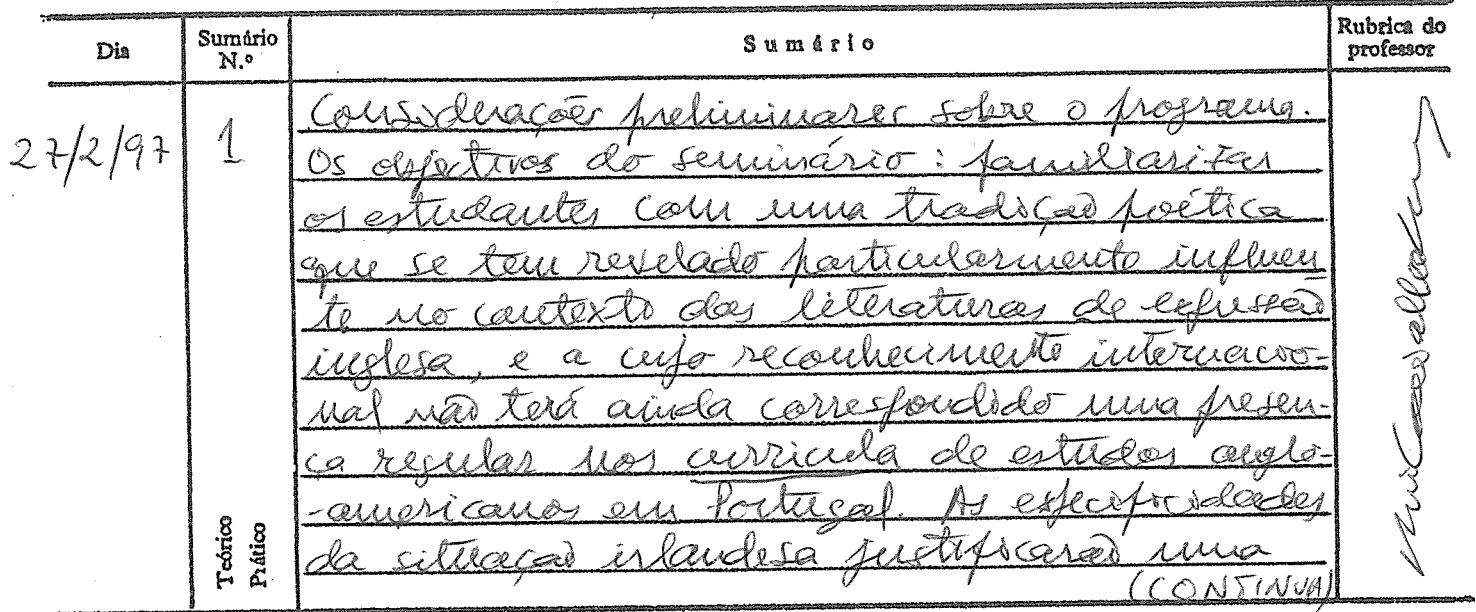 Dia Sumário N.º Sumário Rubrica do professor
27/2/97 1
Considerações preliminares sobre o programa.
Os objectivos do seminário: familiarizar
os estudantes com uma tradição poética
que se tem revelado particularmente influen
te no contexto das literaturas de expressão
inglesa, e a cujo reconhecimento internacio-
nal não terá ainda correspondido uma presen-
ça regular nos curricula de estudos anglo-
-americanos em Portugal. As especificidades
da situação irlandesa justificarão uma
(CONTINUA)
Teórico
Prático